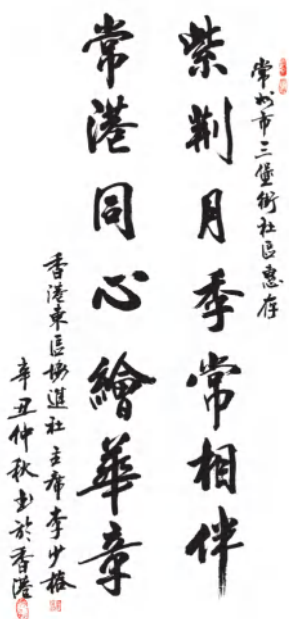 常州市三堡街社区惠存
紫荆月季常相伴
常港同心繪華章
香港東區協進社 主席李少榕
辛丑仲秋书於香港